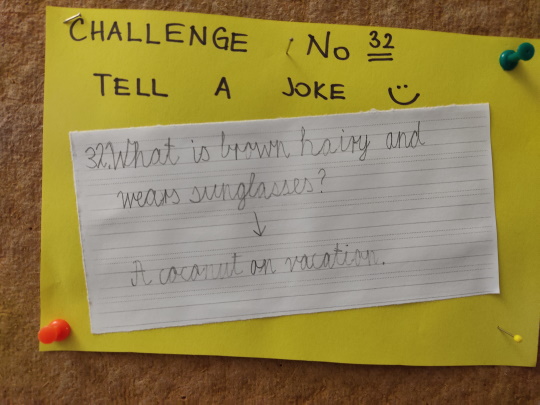 CHALLENGE : No 32
TELL A JOKE
32.What is brown hairy and
wears sunglasses?
A coconut on vacation.